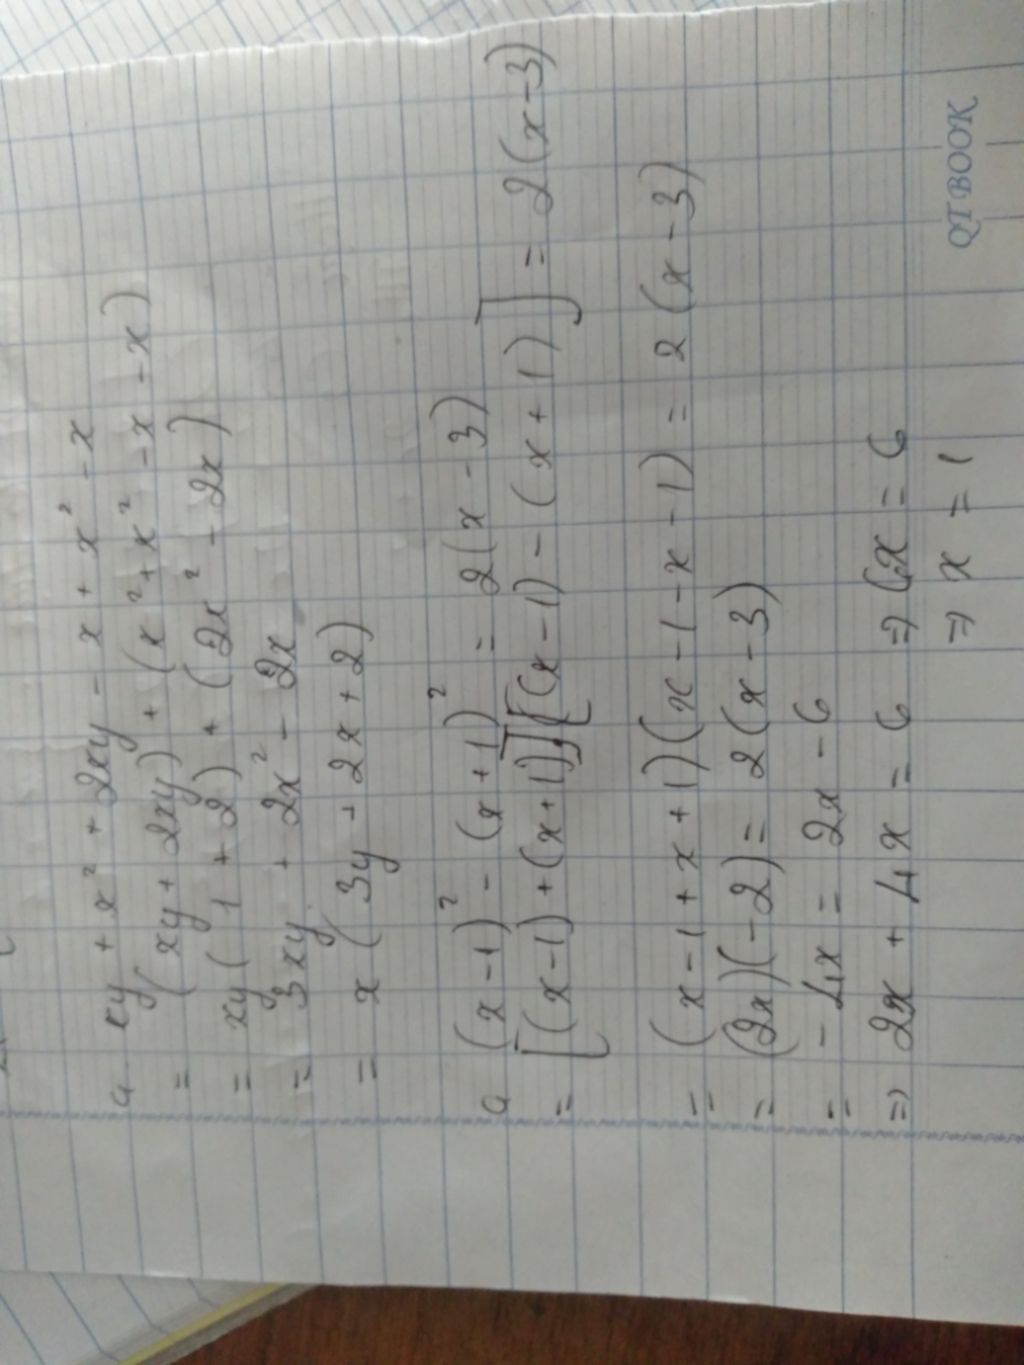 a xy + x² + 2xy - x + x² - x
= (xy + 2xy) + (x² + x² - x - x)
= xy (1 + 2) + (2x² - 2x)
= 3xy + 2x² - 2x
= x (3y + 2x + 2)
a (x - 1)² - (x + 1)² = 2(x - 3)
= [(x - 1) + (x + 1)] [(x - 1) - (x + 1)] = 2(x - 3)
= (x - 1 + x + 1)(x - 1 - x - 1) = 2(x - 3)
= (2x)(-2) = 2(x - 3)
= -4x = 2x - 6
⇒ 2x + 4x = 6 ⇒ 6x = 6
⇒ x = 1
QT BOOK